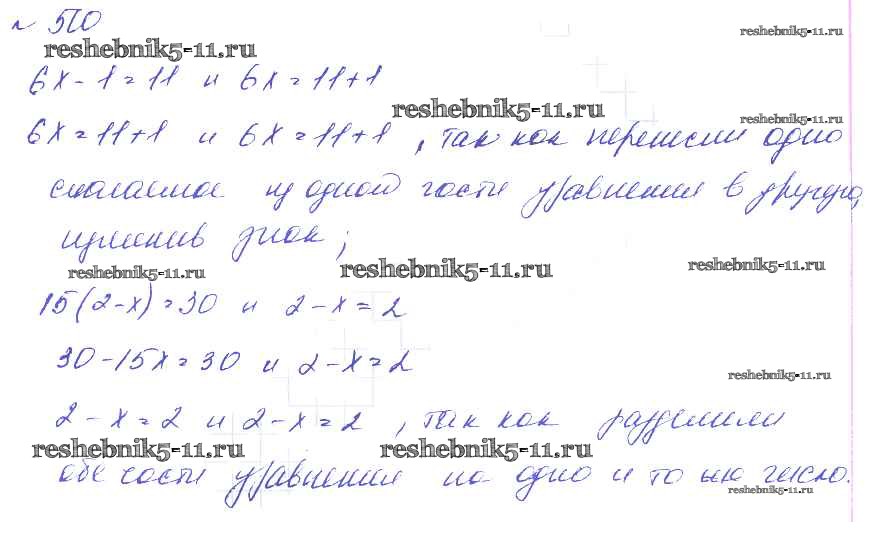 № 510
reshebnik5-11.ru
reshebnik5-11.ru
6x - 1 = 11 и 6x = 11+1
reshebnik5-11.ru
reshebnik5-11.ru
6x = 11+1 и 6x = 11+1, так как перенесли одно
слагаемое из одной части уравнения в другую,
изменив знак;
reshebnik5-11.ru
reshebnik5-11.ru
reshebnik5-11.ru
15(2-x) = 30 и 2-x = 2
30-15x = 30 и 2-x = 2
reshebnik5-11.ru
2-x = 2 и 2-x = 2, так как разделили
reshebnik5-11.ru
reshebnik5-11.ru
обе части уравнения на одно и то же число.
reshebnik5-11.ru